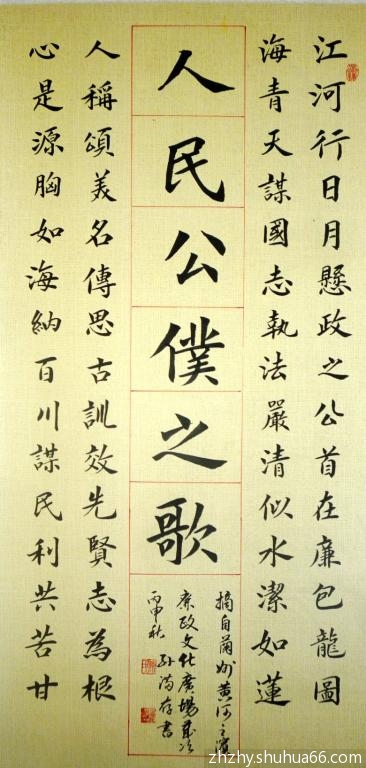 江河行日月懸政之公首在廉包龍圖
海青天謀國志執法嚴清似水潔如蓮
人民公僕之歌
摘自蘭州黃河之濱
廉政文化廣場歲次
丙申秋 孫滿存書
人稱頌美名傳思古訓效先賢志為根
心是源胸如海納百川謀民利共苦甘
zhzhy.shuhua66.com